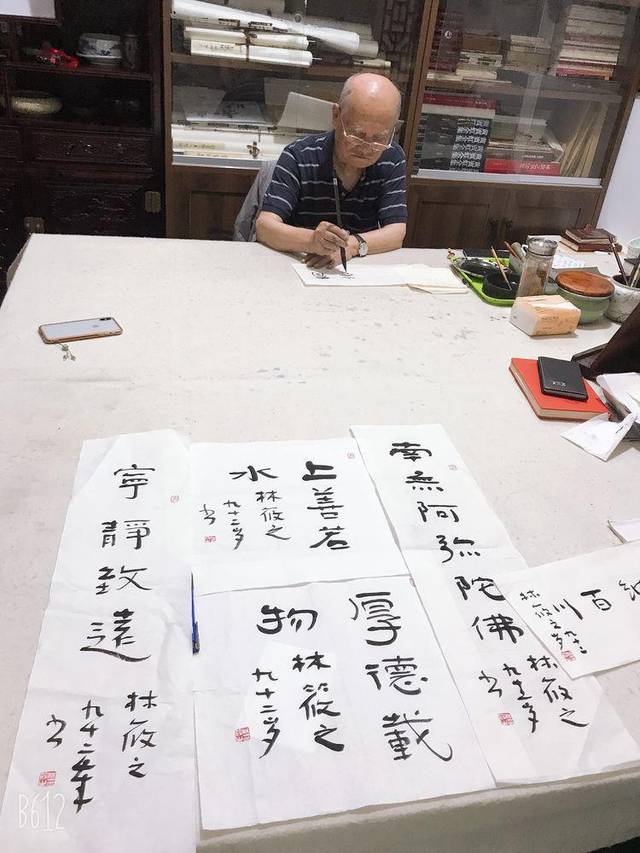 南無阿弥陀佛
林筱之
九十二岁
书
上善若
水
林筱之
九十二岁
书
厚德載
物
林筱之
九十二岁
寧靜致遠
林筱之
九十二
书
百
川
林筱之
九十二
B612